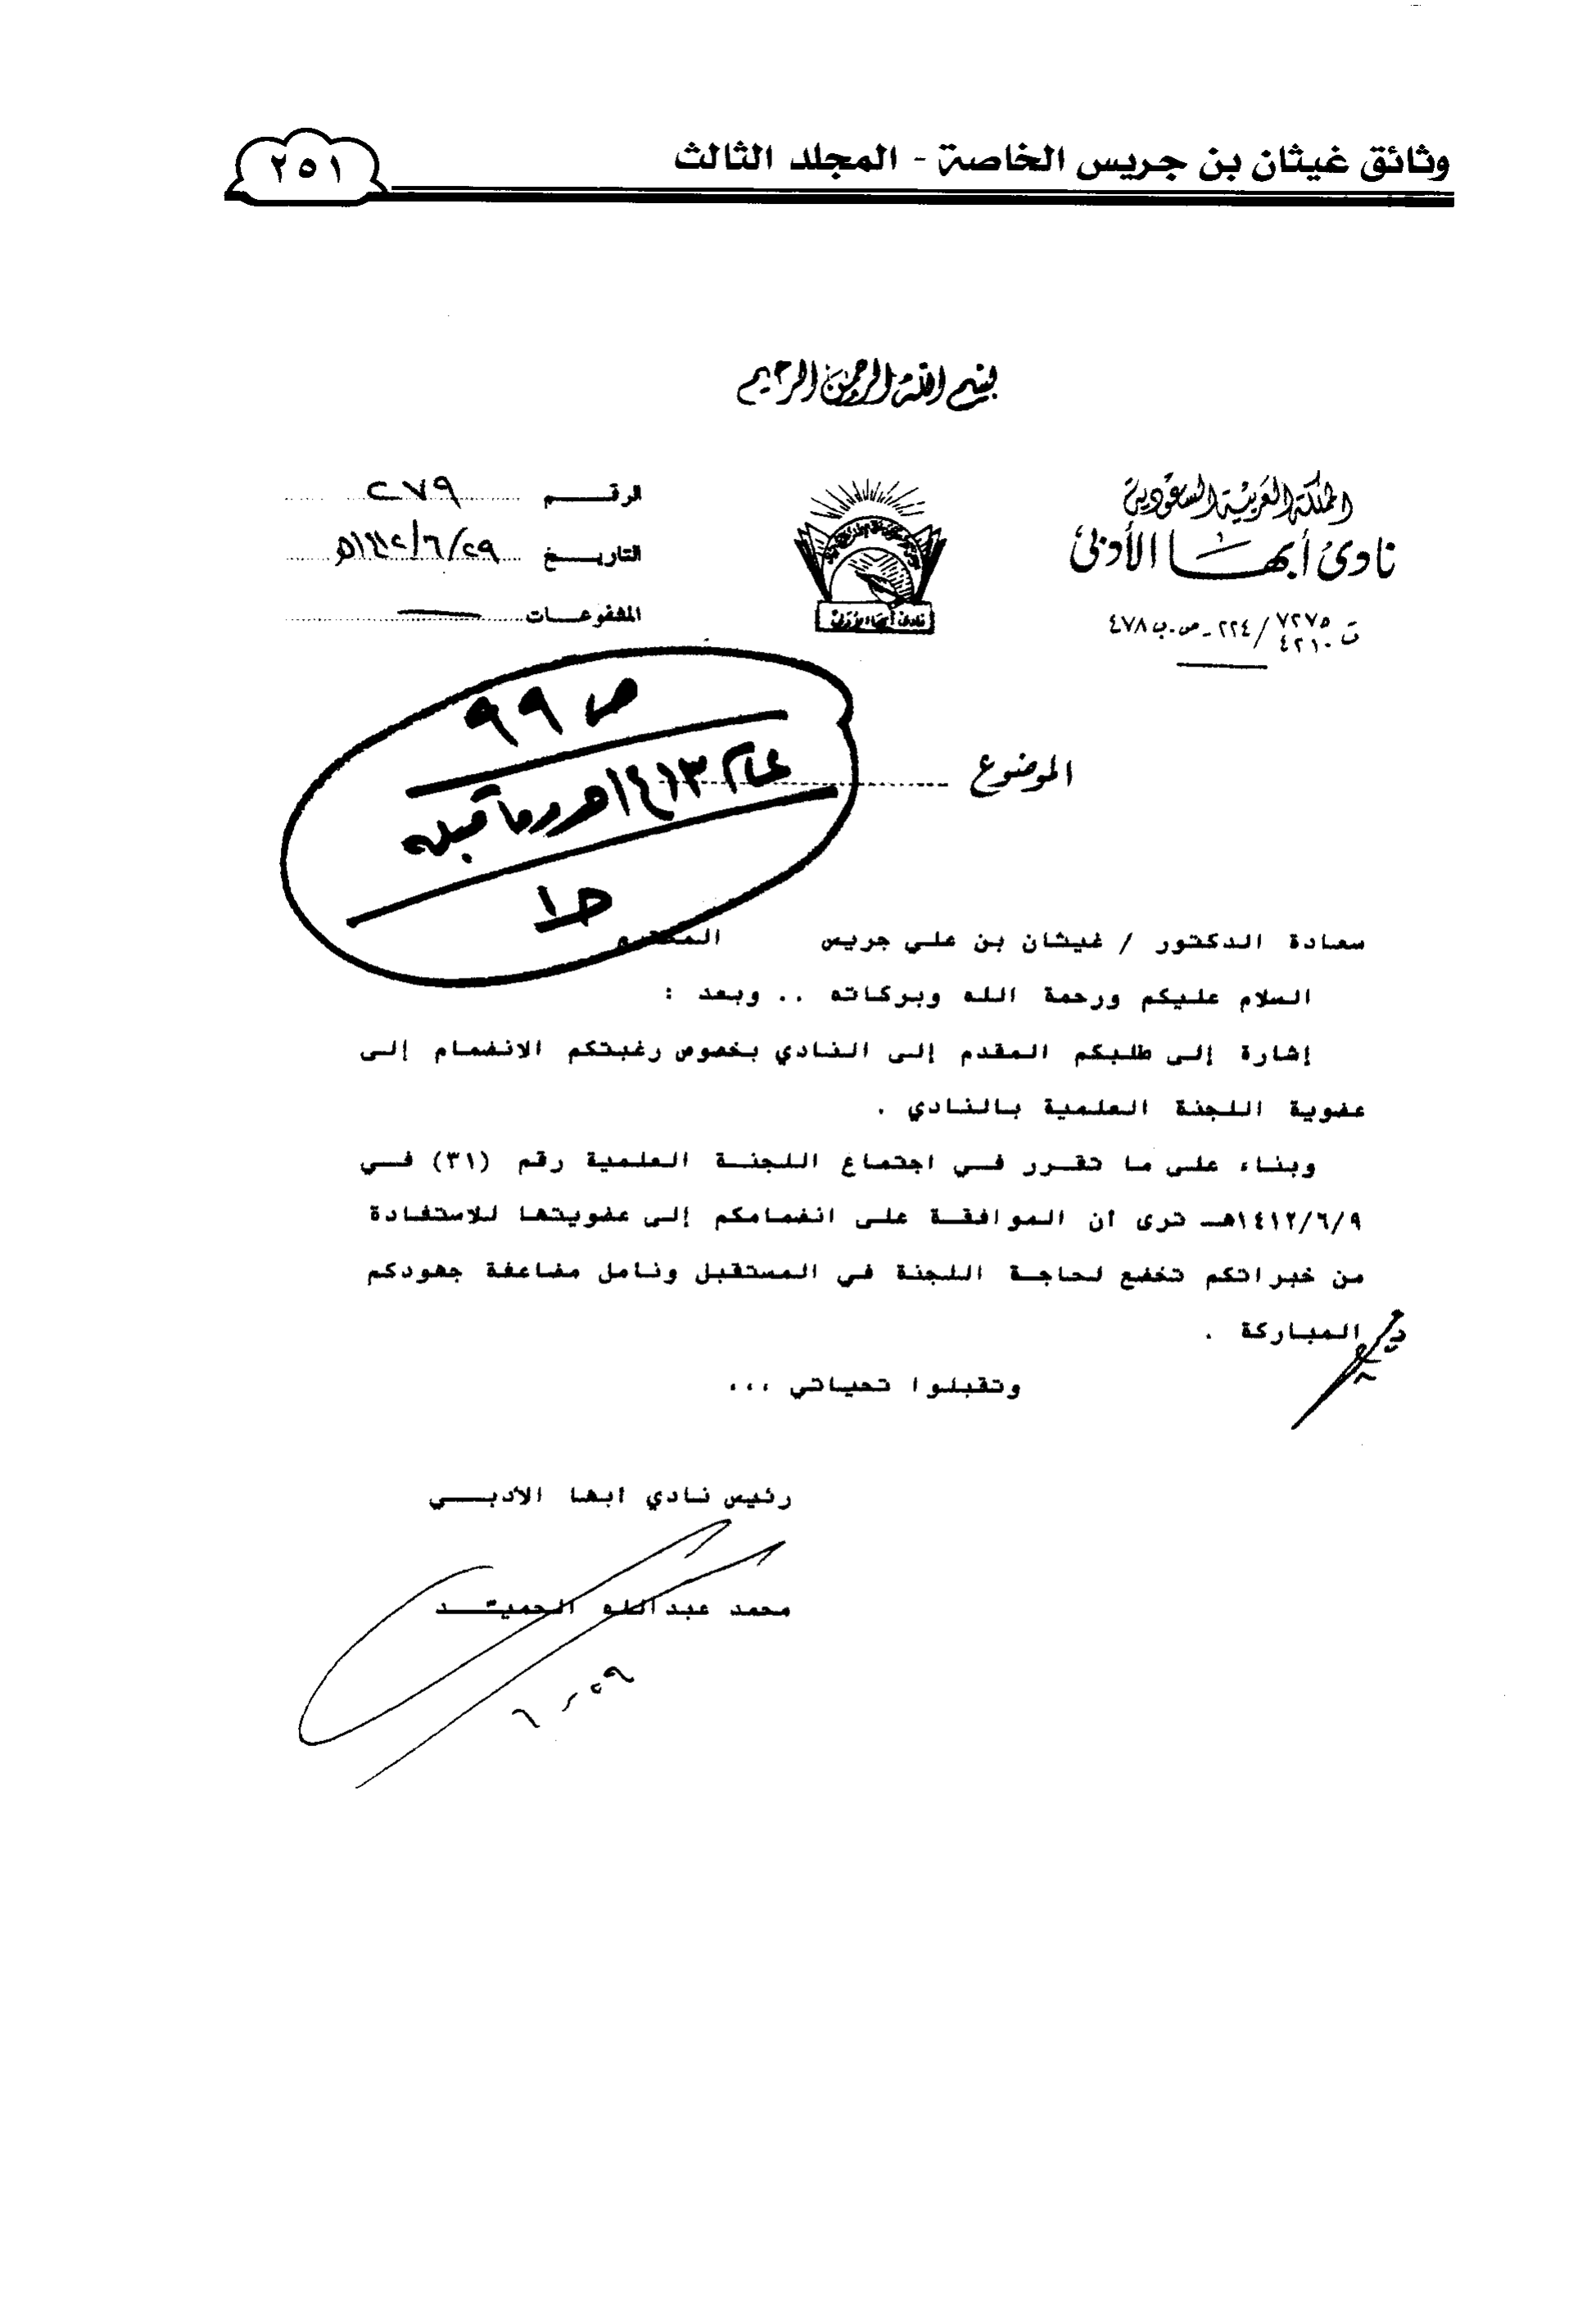 وثائق غيثان بن جريس الخاصة - المجلد الثالث
٢٥١
بسم الله الرحمن الرحيم
المملكة العربية السعودية
نادي أبها الأدبي
ت ٧٢٧٥ / ٢٢٤ - ص.ب ٤٧٨
٤٢١٠
نادي أبها الأدبي
الرقـــــم ٢٧٩
التاريـــخ ٢٩/٦/١٤١٢هـ
المشفوعـــات
ص ٩٩
عام ١٤١٣هـ وما قبله
ج١
الموضوع
سعادة الدكتور / غيثان بن علي جريس المحترم
السلام عليكم ورحمة الله وبركاته .. وبعد :
إشارة إلى طلبكم المقدم إلى النادي بخصوص رغبتكم الانضمام إلى
عضوية اللجنة العلمية بالنادي .
وبناء على ما تقرر في اجتماع اللجنة العلمية رقم (٣١) في
١٤١٢/٦/٩هـ ترى أن الموافقة على انضمامكم إلى عضويتها للاستفادة
من خبراتكم تخضع لحاجة اللجنة في المستقبل ونامل مضاعفة جهودكم
المباركة .
وتقبلوا تحياتي ...
رئيس نادي ابها الأدبـــي
محمد عبدالله الحميـــد
٢٩ - ٦